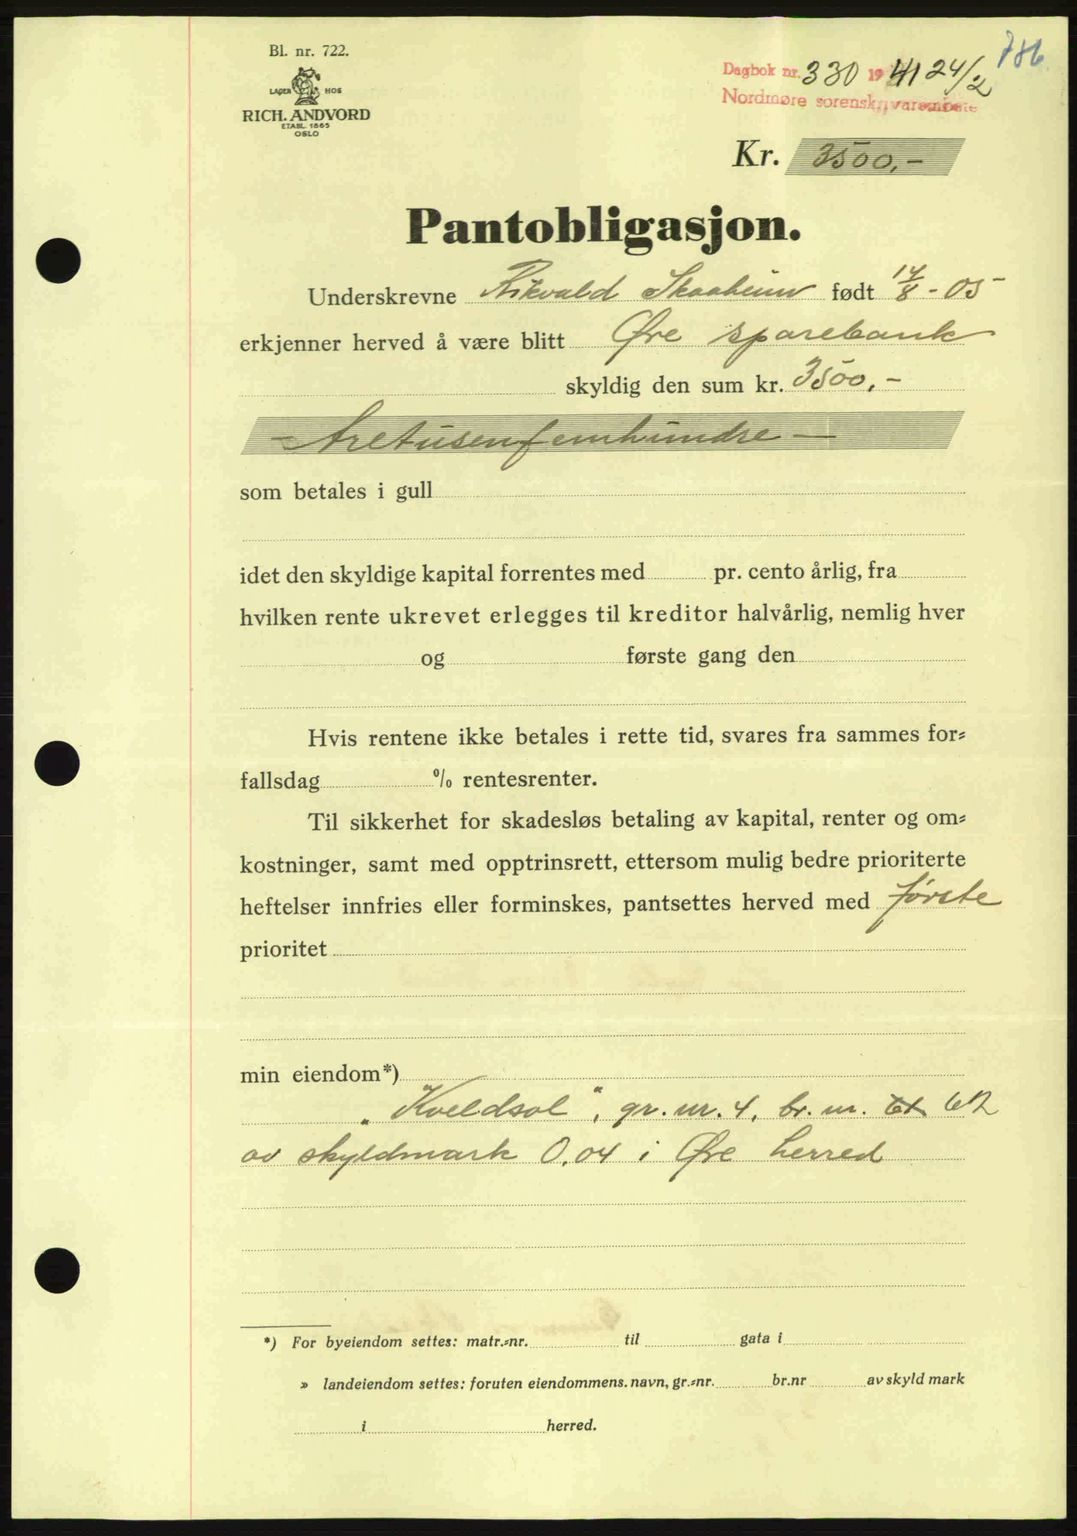 786
Bl. nr. 722.
Dagbok nr. 330 1941 24/2
LAGER HOS
Nordmøre sorenskriverembete
RICH. ANDVORD
ETABL 1865
OSLO
Kr. 3500,-
Pantobligasjon.
Underskrevne Rikvald Skaaheim født 14/8 - 05
erkjenner herved å være blitt Øre sparebank
skyldig den sum kr. 3500,-
- Tretusenfemhundre -
som betales i gull
idet den skyldige kapital forrentes med pr. cento årlig, fra
hvilken rente ukrevet erlegges til kreditor halvårlig, nemlig hver
og første gang den
Hvis rentene ikke betales i rette tid, svares fra sammes for=
fallsdag % rentesrenter.
Til sikkerhet for skadesløs betaling av kapital, renter og om=
kostninger, samt med opptrinsrett, ettersom mulig bedre prioriterte
heftelser innfries eller forminskes, pantsettes herved med første
prioritet
min eiendom*)
„Kveldsol", gr. nr. 4, br. nr. 61 62
av skyldmark 0,04 i Øre herred
*) For byeiendom settes: matr.=nr. til gata i
» landeiendom settes: foruten eiendommens. navn, gr.=nr. br.nr av skyld mark
i herred.